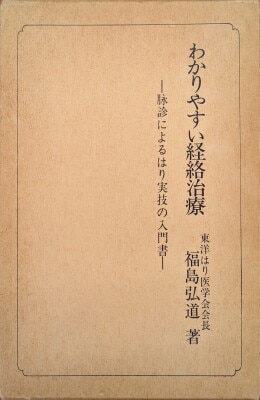 わかりやすい経絡治療
―脉診によるはり実技の入門書―
東洋はり医学会会長
福島弘道 著